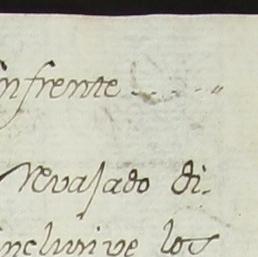 nfrente
revajado di-
inclusive los